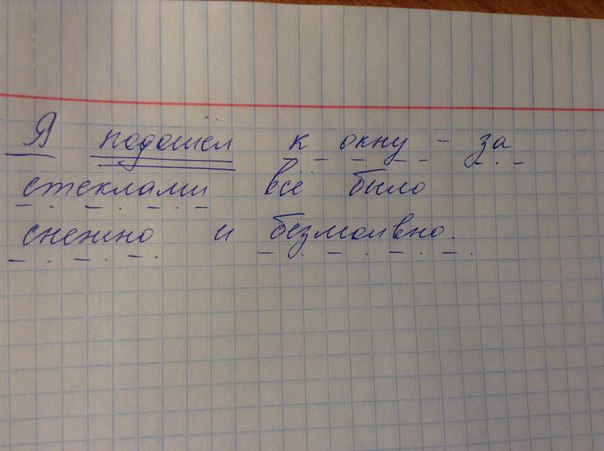 Я подошёл к окну - за
стеклами всё было
снежно и безмолвно.